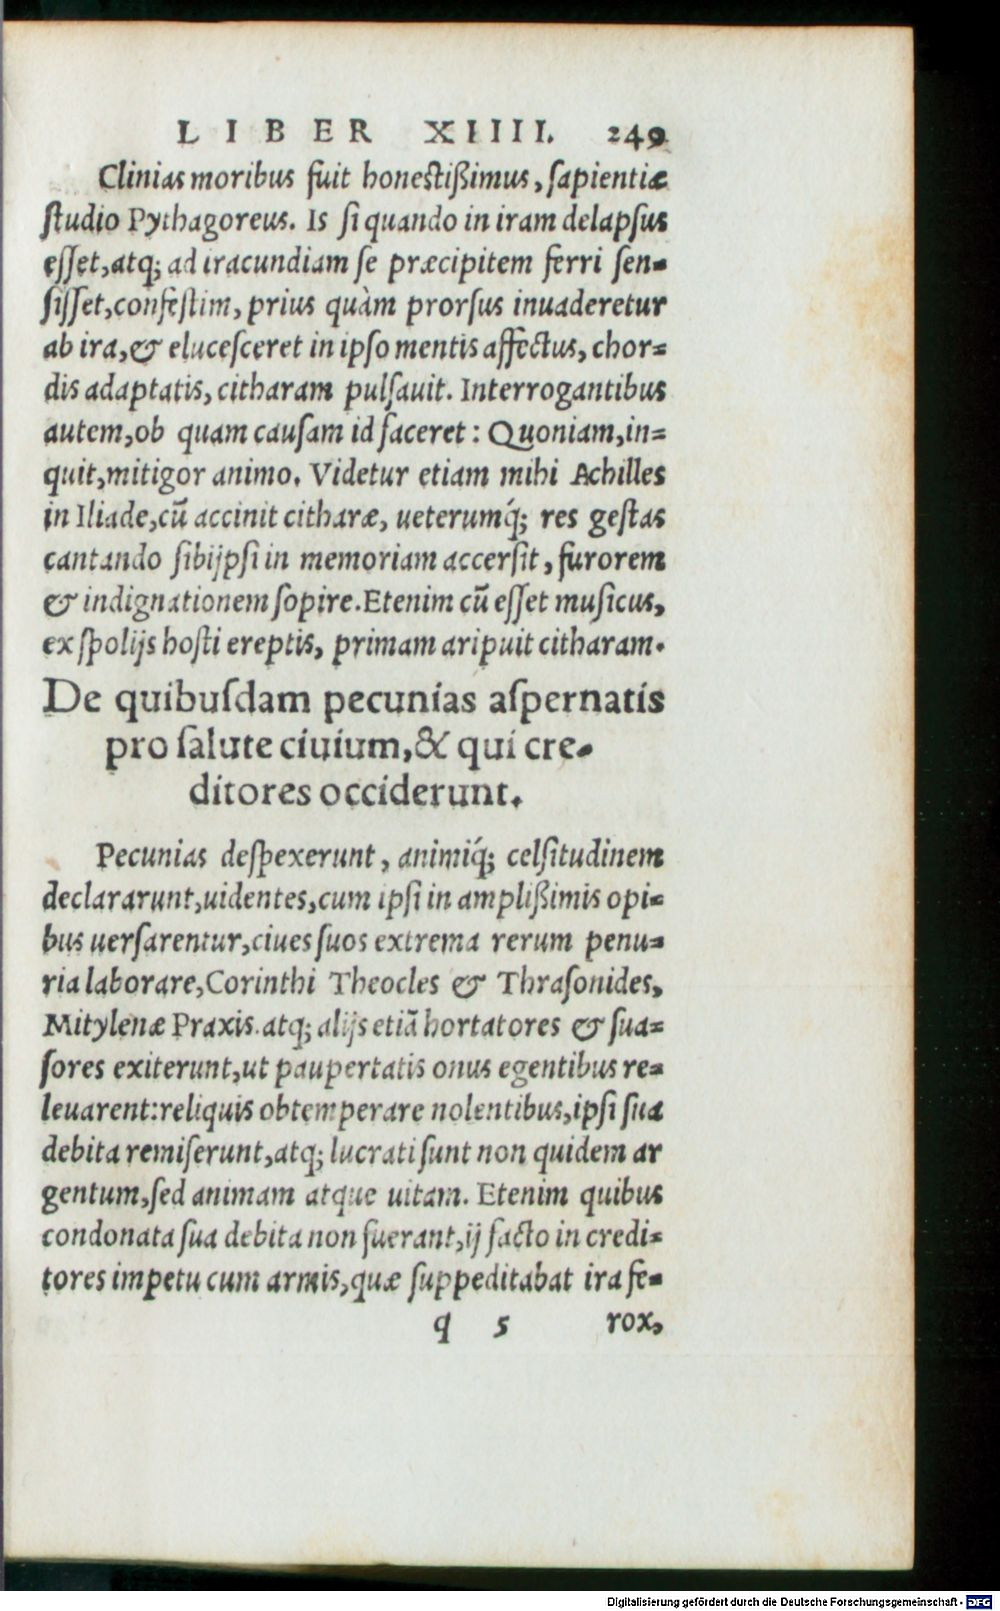 LIBER XIIII. 249
Clinias moribus fuit honestißimus, sapientiæ
studio Pythagoreus. Is si quando in iram delapsus
esset, atq; ad iracundiam se præcipitem ferri sen-
sisset, confestim, prius quàm prorsus inuaderetur
ab ira, & elucesceret in ipso mentis affectus, chor-
dis adaptatis, citharam pulsauit. Interrogantibus
autem, ob quam causam id faceret: Quoniam, in-
quit, mitigor animo. Videtur etiam mihi Achilles
in Iliade, cū accinit citharæ, ueterumq́; res gestas
cantando sibijpsi in memoriam accersit, furorem
& indignationem sopire. Etenim cū esset musicus,
ex spolijs hosti ereptis, primam aripuit citharam.
De quibusdam pecunias aspernatis
pro salute ciuium, & qui cre-
ditores occiderunt.
Pecunias despexerunt, animiq́; celsitudinem
declararunt, uidentes, cum ipsi in amplißimis opi-
bus uersarentur, ciues suos extrema rerum penu-
ria laborare, Corinthi Theocles & Thrasonides,
Mitylenæ Praxis. atq; alijs etiā hortatores & sua-
sores exiterunt, ut paupertatis onus egentibus re-
leuarent: reliquis obtemperare nolentibus, ipsi sua
debita remiserunt, atq; lucrati sunt non quidem ar
gentum, sed animam atque uitam. Etenim quibus
condonata sua debita non fuerant, ij facto in credi-
tores impetu cum armis, quæ suppeditabat ira fe-
q 5 rox,
Digitalisierung gefördert durch die Deutsche Forschungsgemeinschaft - DFG